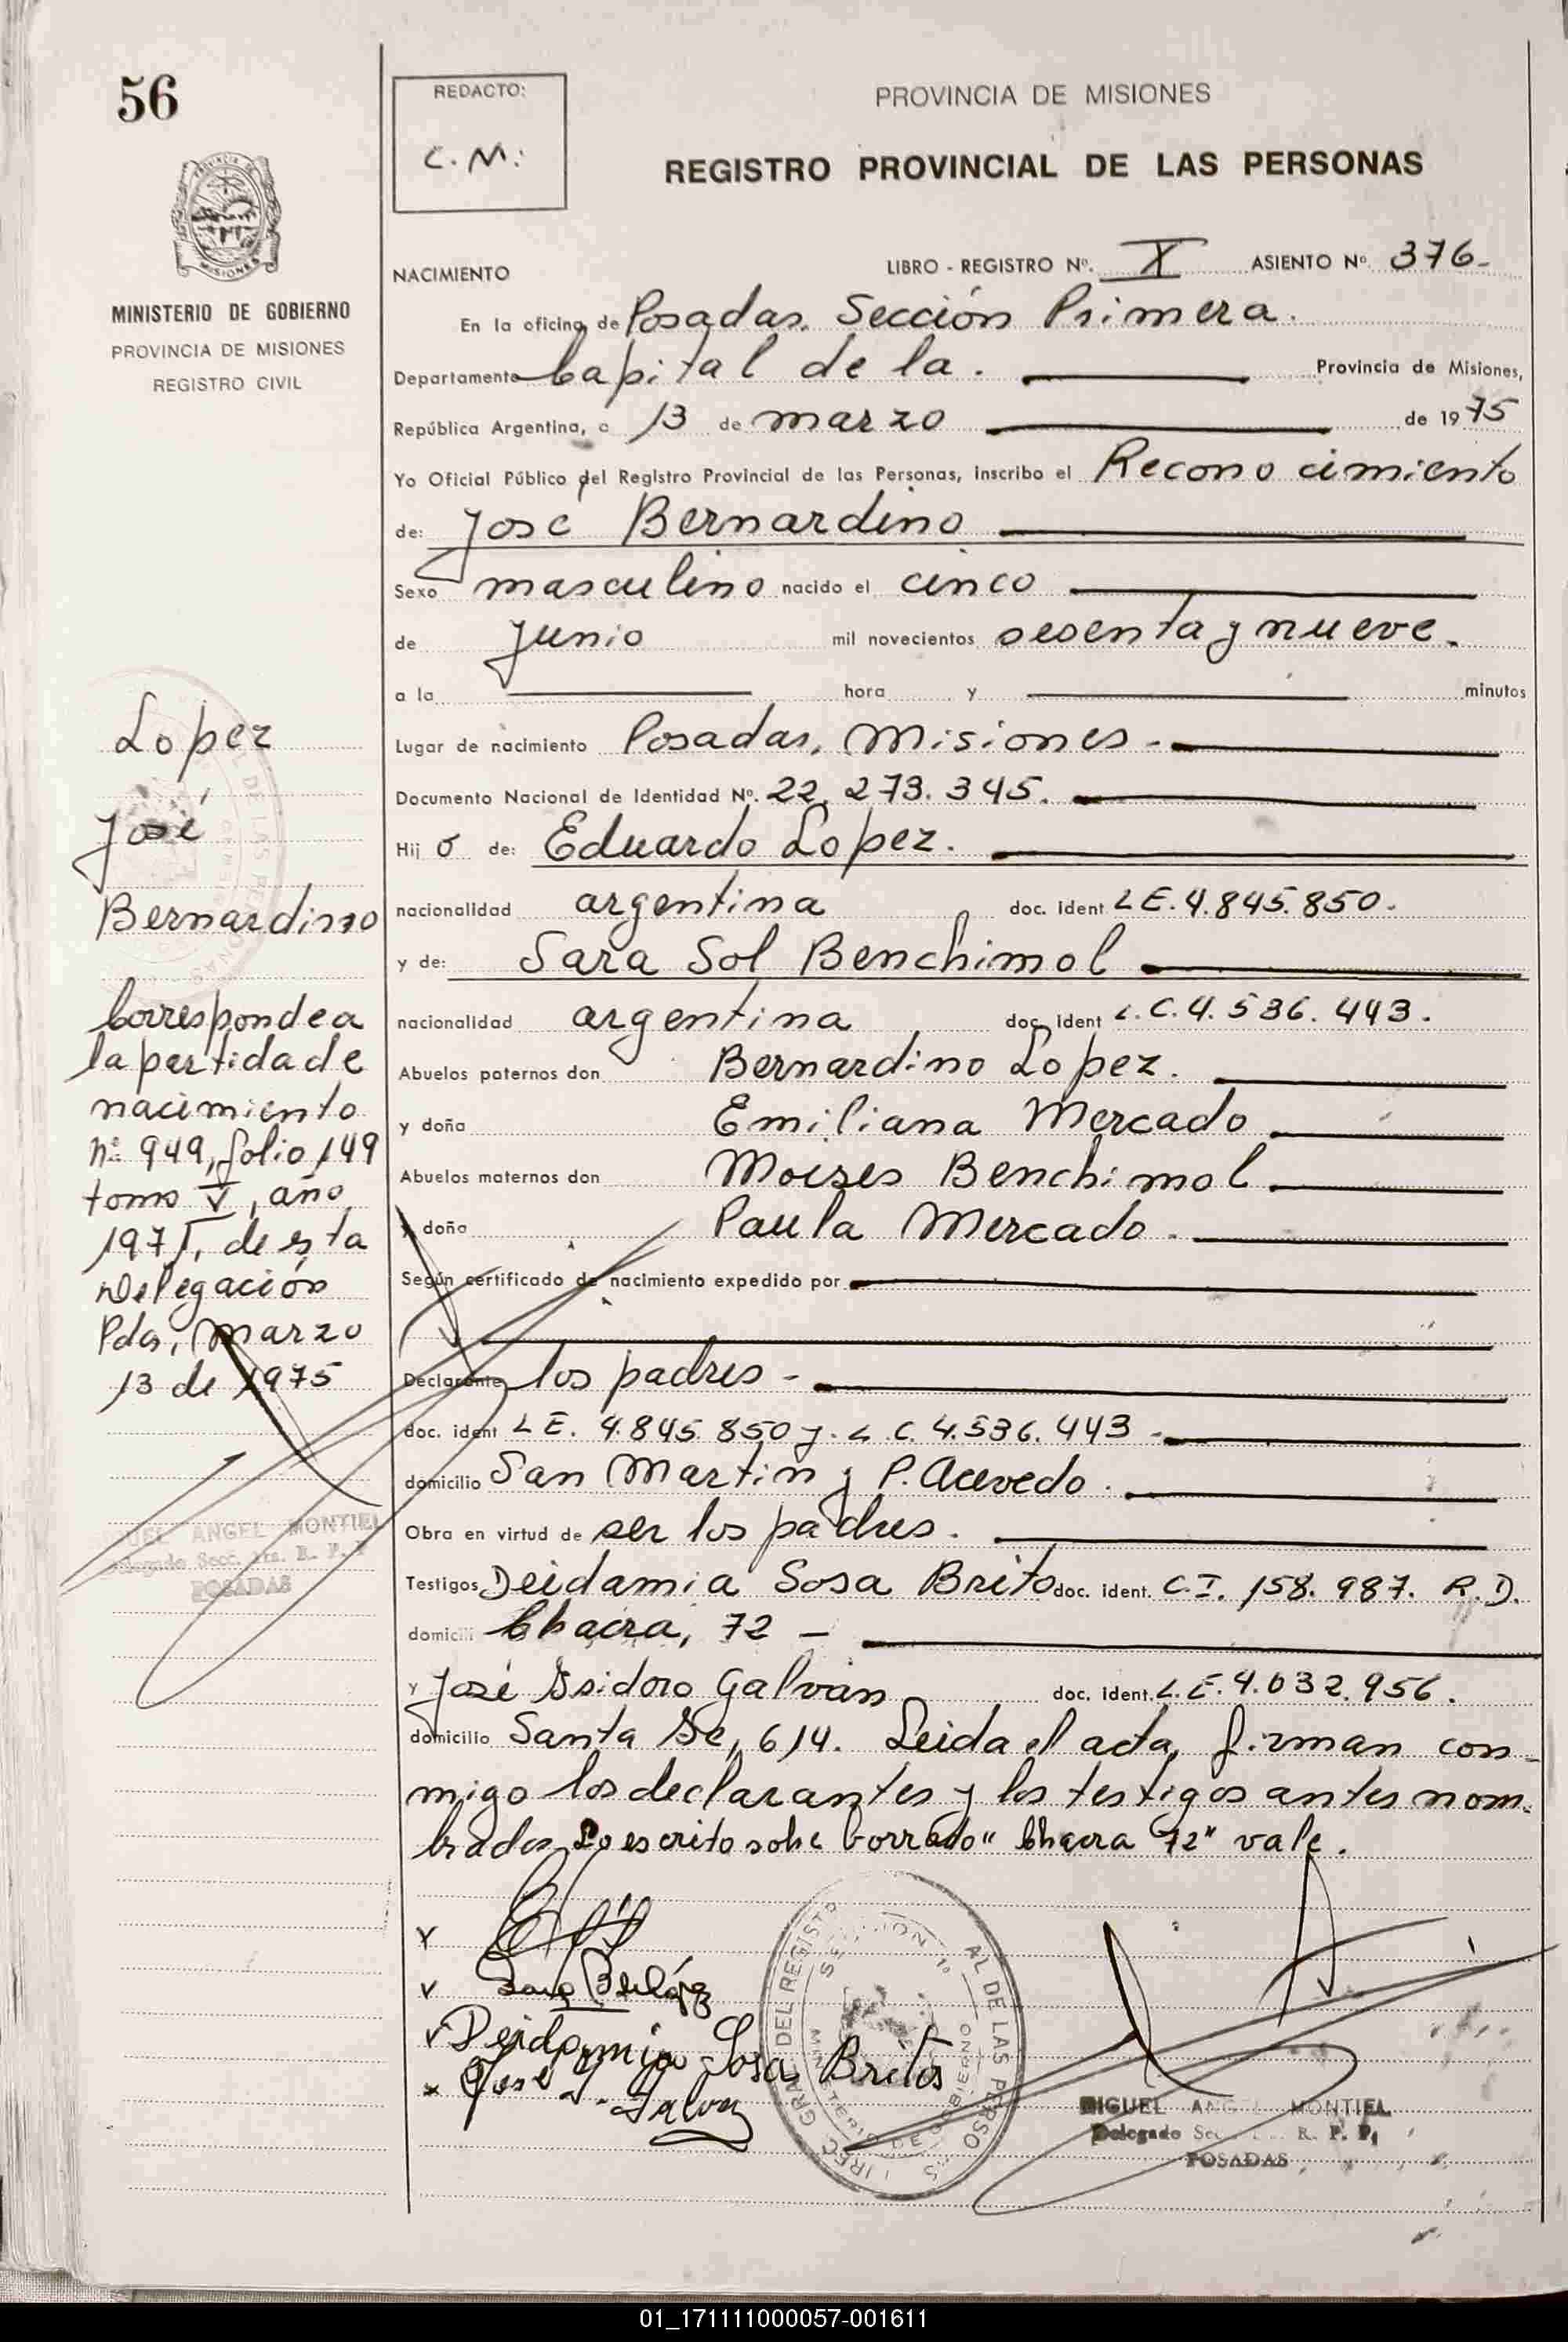 56
REDACTO:
C. M:
PROVINCIA DE MISIONES
REGISTRO PROVINCIAL DE LAS PERSONAS
PROVINCIA DE
MISIONES
MINISTERIO DE GOBIERNO
PROVINCIA DE MISIONES
REGISTRO CIVIL
NACIMIENTO
LIBRO - REGISTRO Nº. X ASIENTO Nº 376-
En la oficina de Posadas. Sección Primera.
Departamento Capital de la. Provincia de Misiones,
República Argentina, a 13 de marzo de 1975
Yo Oficial Público del Registro Provincial de las Personas, inscribo el Reconocimiento
de: José Bernardino
Sexo masculino nacido el cinco
de Junio mil novecientos sesenta y nueve.
a la hora y minutos
Lugar de nacimiento Posadas, Misiones -
Documento Nacional de Identidad Nº. 22.273.345.
Hij o de: Eduardo Lopez.
nacionalidad argentina doc. ident LE. 4.845.850.
y de: Sara Sol Benchimol
nacionalidad argentina doc. ident L.C. 4.536.443.
Abuelos paternos don Bernardino Lopez.
y doña Emiliana Mercado
Abuelos maternos don Moises Benchimol
y doña Paula Mercado.
Según certificado de nacimiento expedido por
Declarante los padres -
doc. ident LE. 4.845.850 y. L C. 4.536.443 -
domicilio San Martin y P. Acevedo.
Obra en virtud de ser los padres.
Testigos Deidamia Sosa Brito doc. ident. C.I. 158.987. R.D.
domicili Chacra, 72 -
y José Isidoro Galván doc. ident. L.E. 4.032.956.
domicilio Santa Fe, 614. Leida el acta, firman con-
migo los declarantes y los testigos antes nom-
brados. Lo escrito sobre borrado "Chacra 72" vale.
Lopez
José
Bernardino
Corresponde a
la partida de
nacimiento
nº 949, folio 149
tomo V, año
1971, de esta
Delegación
Pdas, marzo
13 de 1975
MIGUEL ANGEL MONTIEL
Delegado Secc. 1ra. R. P. P.
POSADAS
Deidamia Sosa Brítos
José I. Galván
DIREC. GRAL DEL REGISTRO
AL DE LAS PERSONAS
SECCION 1º
MINISTERIO DE GOBIERNO
MIGUEL ANGEL MONTIEL
Delegado Sec R. P. P.
POSADAS
01_171111000057-001611